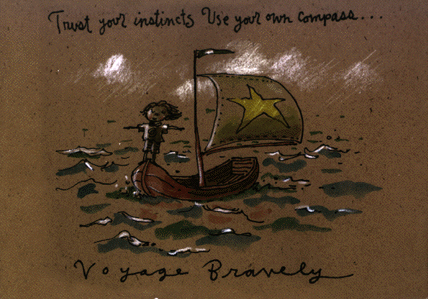 Trust your instincts Use your own compass...
Voyage Bravely